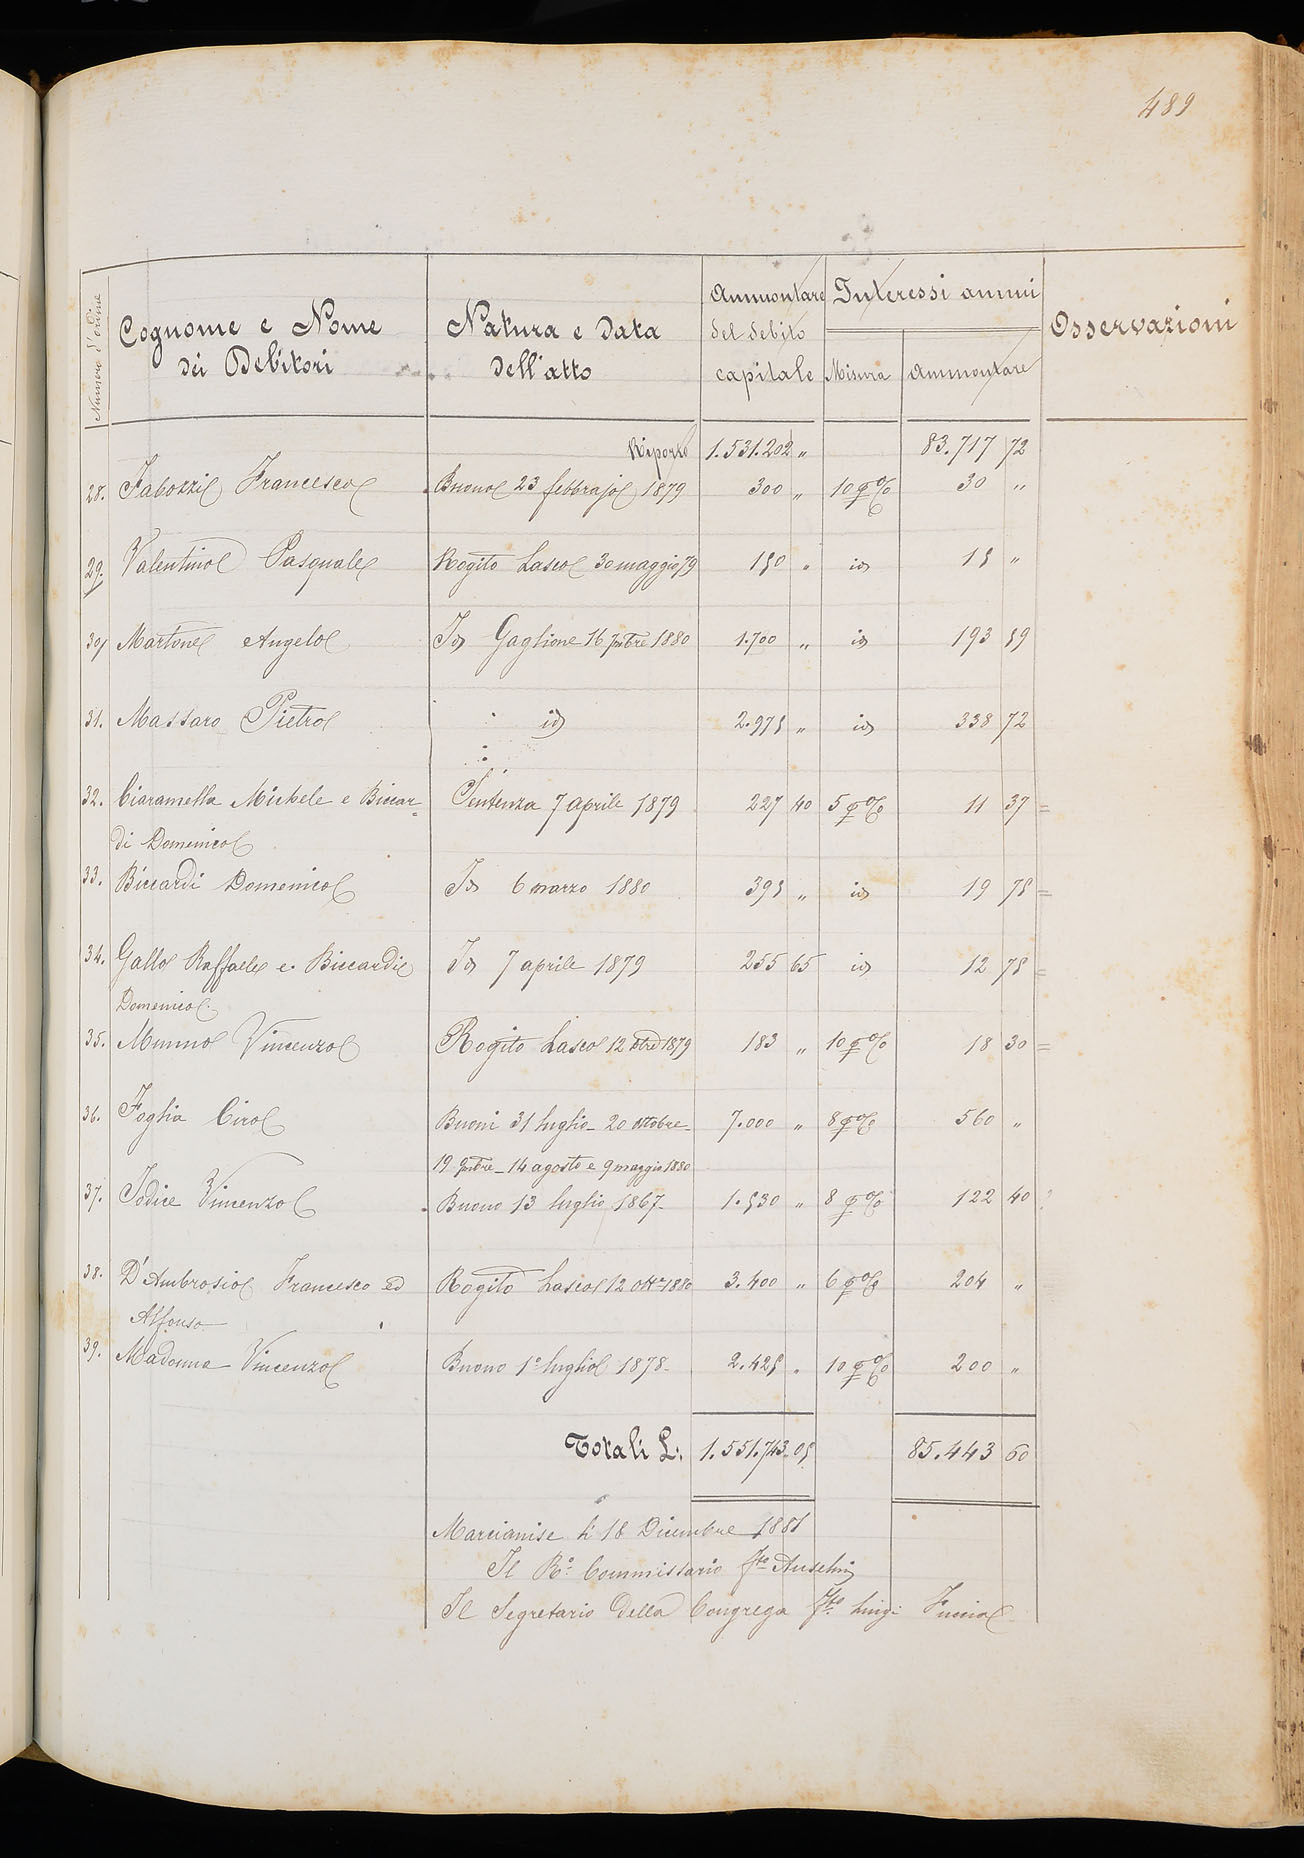 489
Numero d'ordine
Cognome e Nome
dei Debitori
Natura e Data
dell'atto
Ammontare
del debito
capitale
Interessi annui
Misura
Ammontare
Osservazioni
Riporto 1.531.202 „ 83.717 72
28. Fabozzi Francesco Buono 23 febbrajo 1879 300 „ 10 p% 30 „
29. Valentino Pasquale Rogito Lasco 30 maggio 79 150 „ id 15 „
30 Martone Angelo Id Gaglione 16 7mbre 1880 1.700 „ id 193 59
31. Massaro Pietro id 2.975 „ id 338 72
32. Ciaramella Michele e Biccar= Sentenza 7 aprile 1879 227 40 5 p% 11 37 =
di Domenico
33. Biccardi Domenico Id 6 marzo 1880 395 „ id 19 75 =
34. Gallo Raffaele e Biccardi Id 7 aprile 1879 255 65 id 12 78 =
Domenico
35. Munno Vincenzo Rogito Lasco 12 1879 183 „ 10 p% 18 30 =
36. Foglia Ciro Buoni 31 luglio - 20 ottobre 7.000 „ 8 p% 560 „
19 9mbre - 14 agosto e 9 maggio 1880
37. Iodice Vincenzo Buono 13 luglio 1867 1.530 „ 8 p% 122 40
38. D'Ambrosio Francesco ed Rogito Lasco 12 ott.e 1880 3.400 „ 6 p% 204 „
Alfonso
39. Madonna Vincenzo Buono 1° luglio 1878 2.425 „ 10 p% 200 „
Totali L: 1.551.743.05 85.443 60
Marcianise li 18 Dicembre 1881
Il R.° Commissario fto
Il Segretario della Congrega fto Luigi